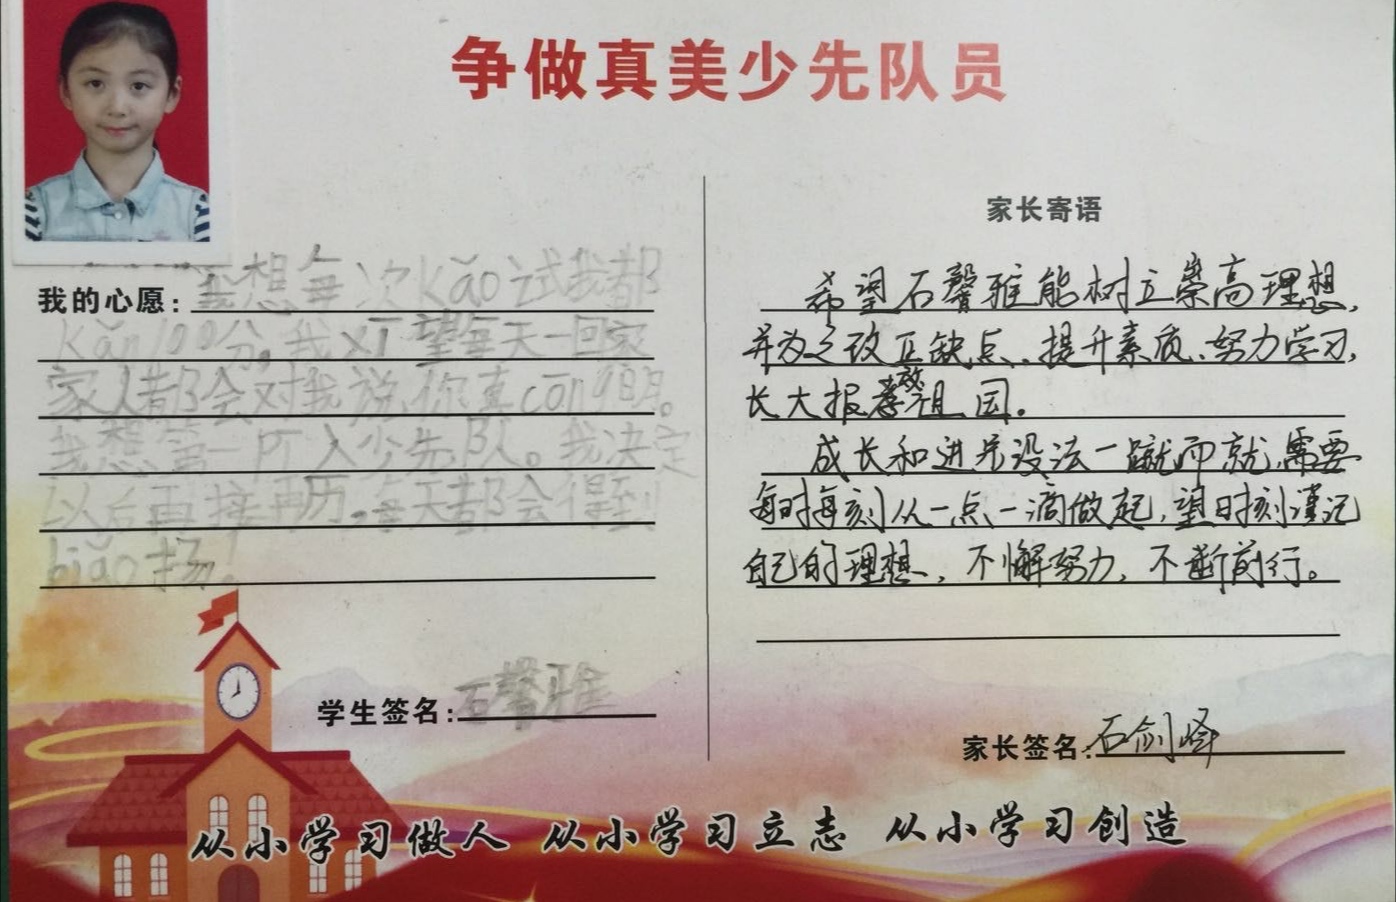 争做真美少先队员
我的心愿：我想每次kǎo试我都
kǎo100分。我xī望每天一回家
家人都会对我说你真cōng明。
我想第一pī入少先队。我决定
以后再接再厉，每天都会得到
biǎo扬！
学生签名：石馨雅
家长寄语
希望石馨雅能树立崇高理想，
并为之改正缺点、提升素质、努力学习，
长大报效祖国。
成长和进步没法一蹴而就，需要
每时每刻从一点一滴做起，望时刻谨记
自己的理想，不懈努力，不断前行。
家长签名：石剑峰
从小学习做人 从小学习立志 从小学习创造